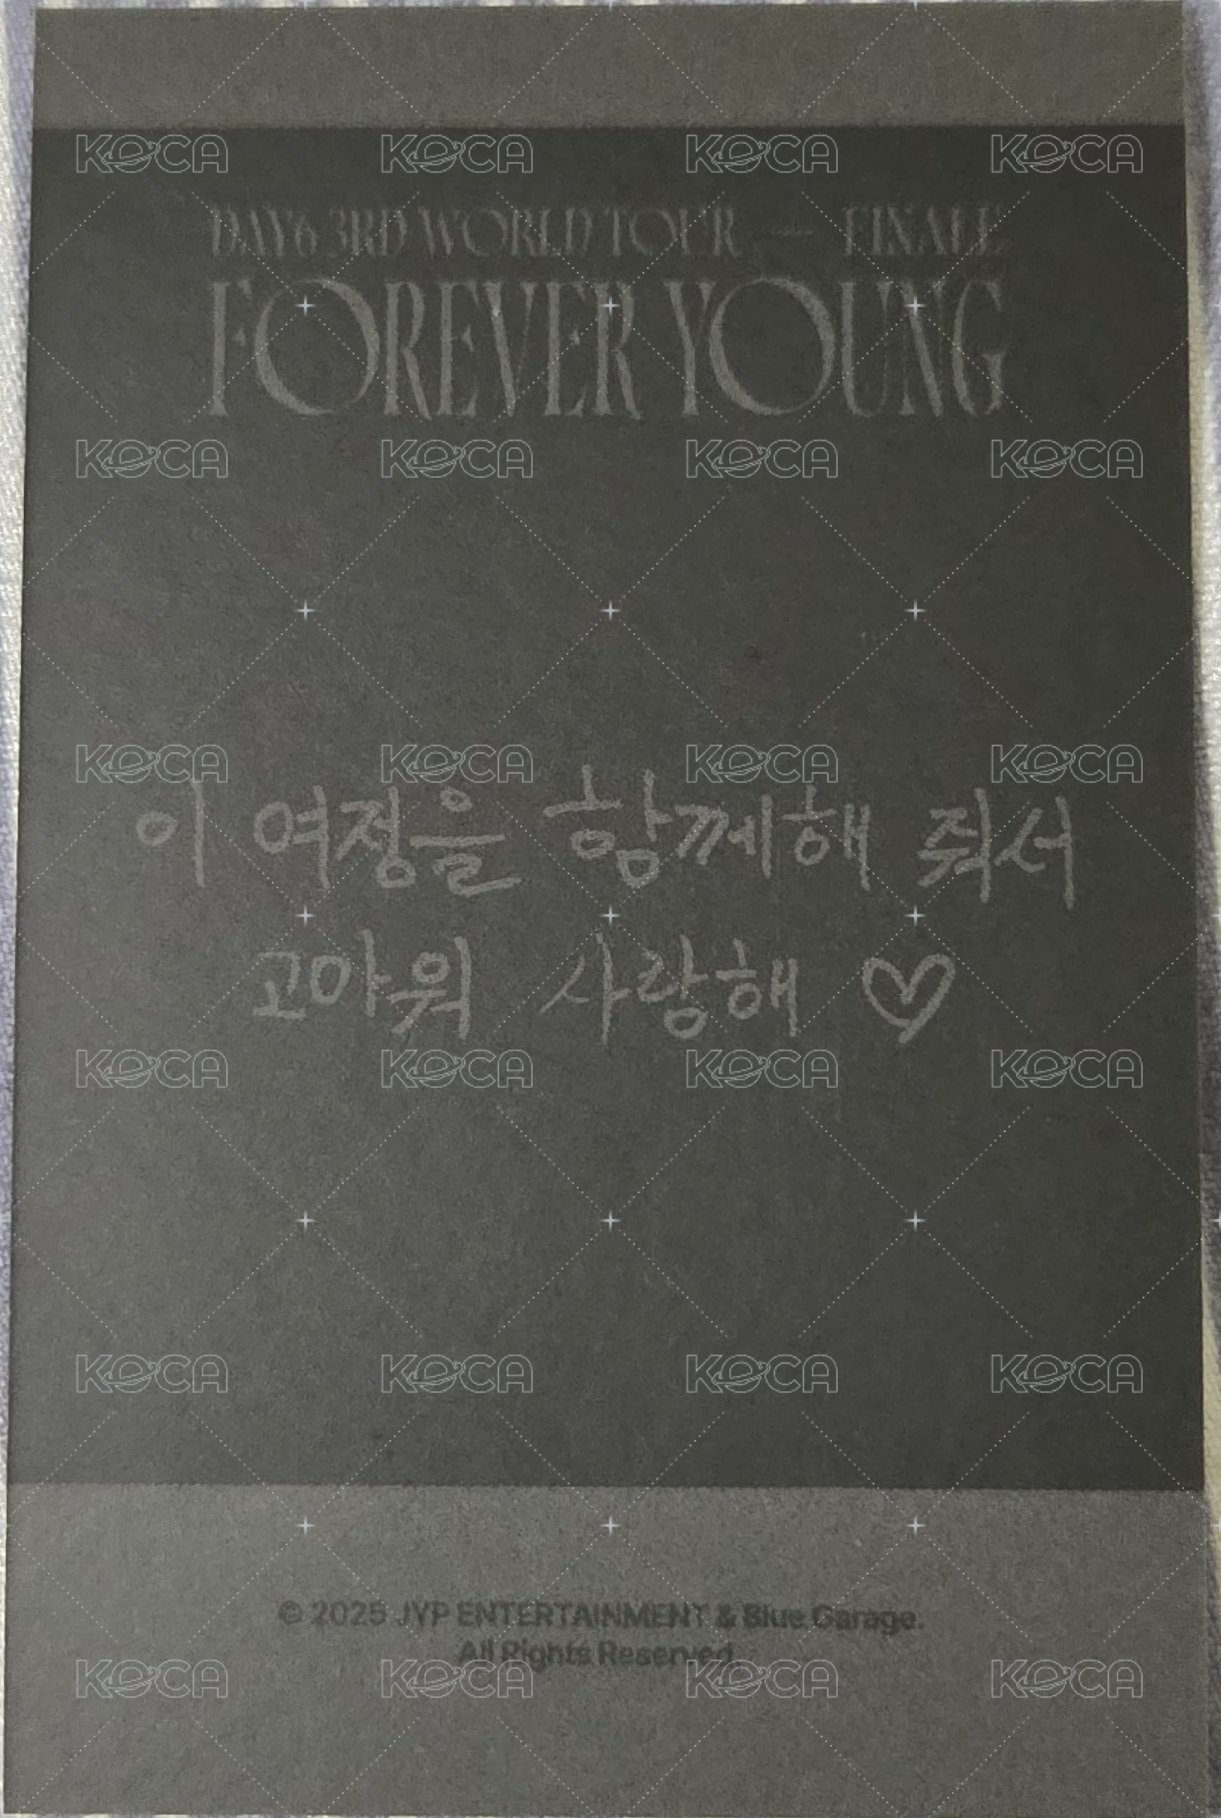 DAY6 3RD WORLD TOUR — FINALE
FOREVER YOUNG
이 여정을 함께해 줘서
고마워 사랑해 ♡
© 2025 JYP ENTERTAINMENT & Blue Garage.
All Rights Reserved.
KOCA KOCA KOCA KOCA
KOCA KOCA KOCA KOCA
KOCA KOCA KOCA KOCA
KOCA KOCA KOCA KOCA
KOCA KOCA KOCA KOCA
KOCA KOCA KOCA KOCA